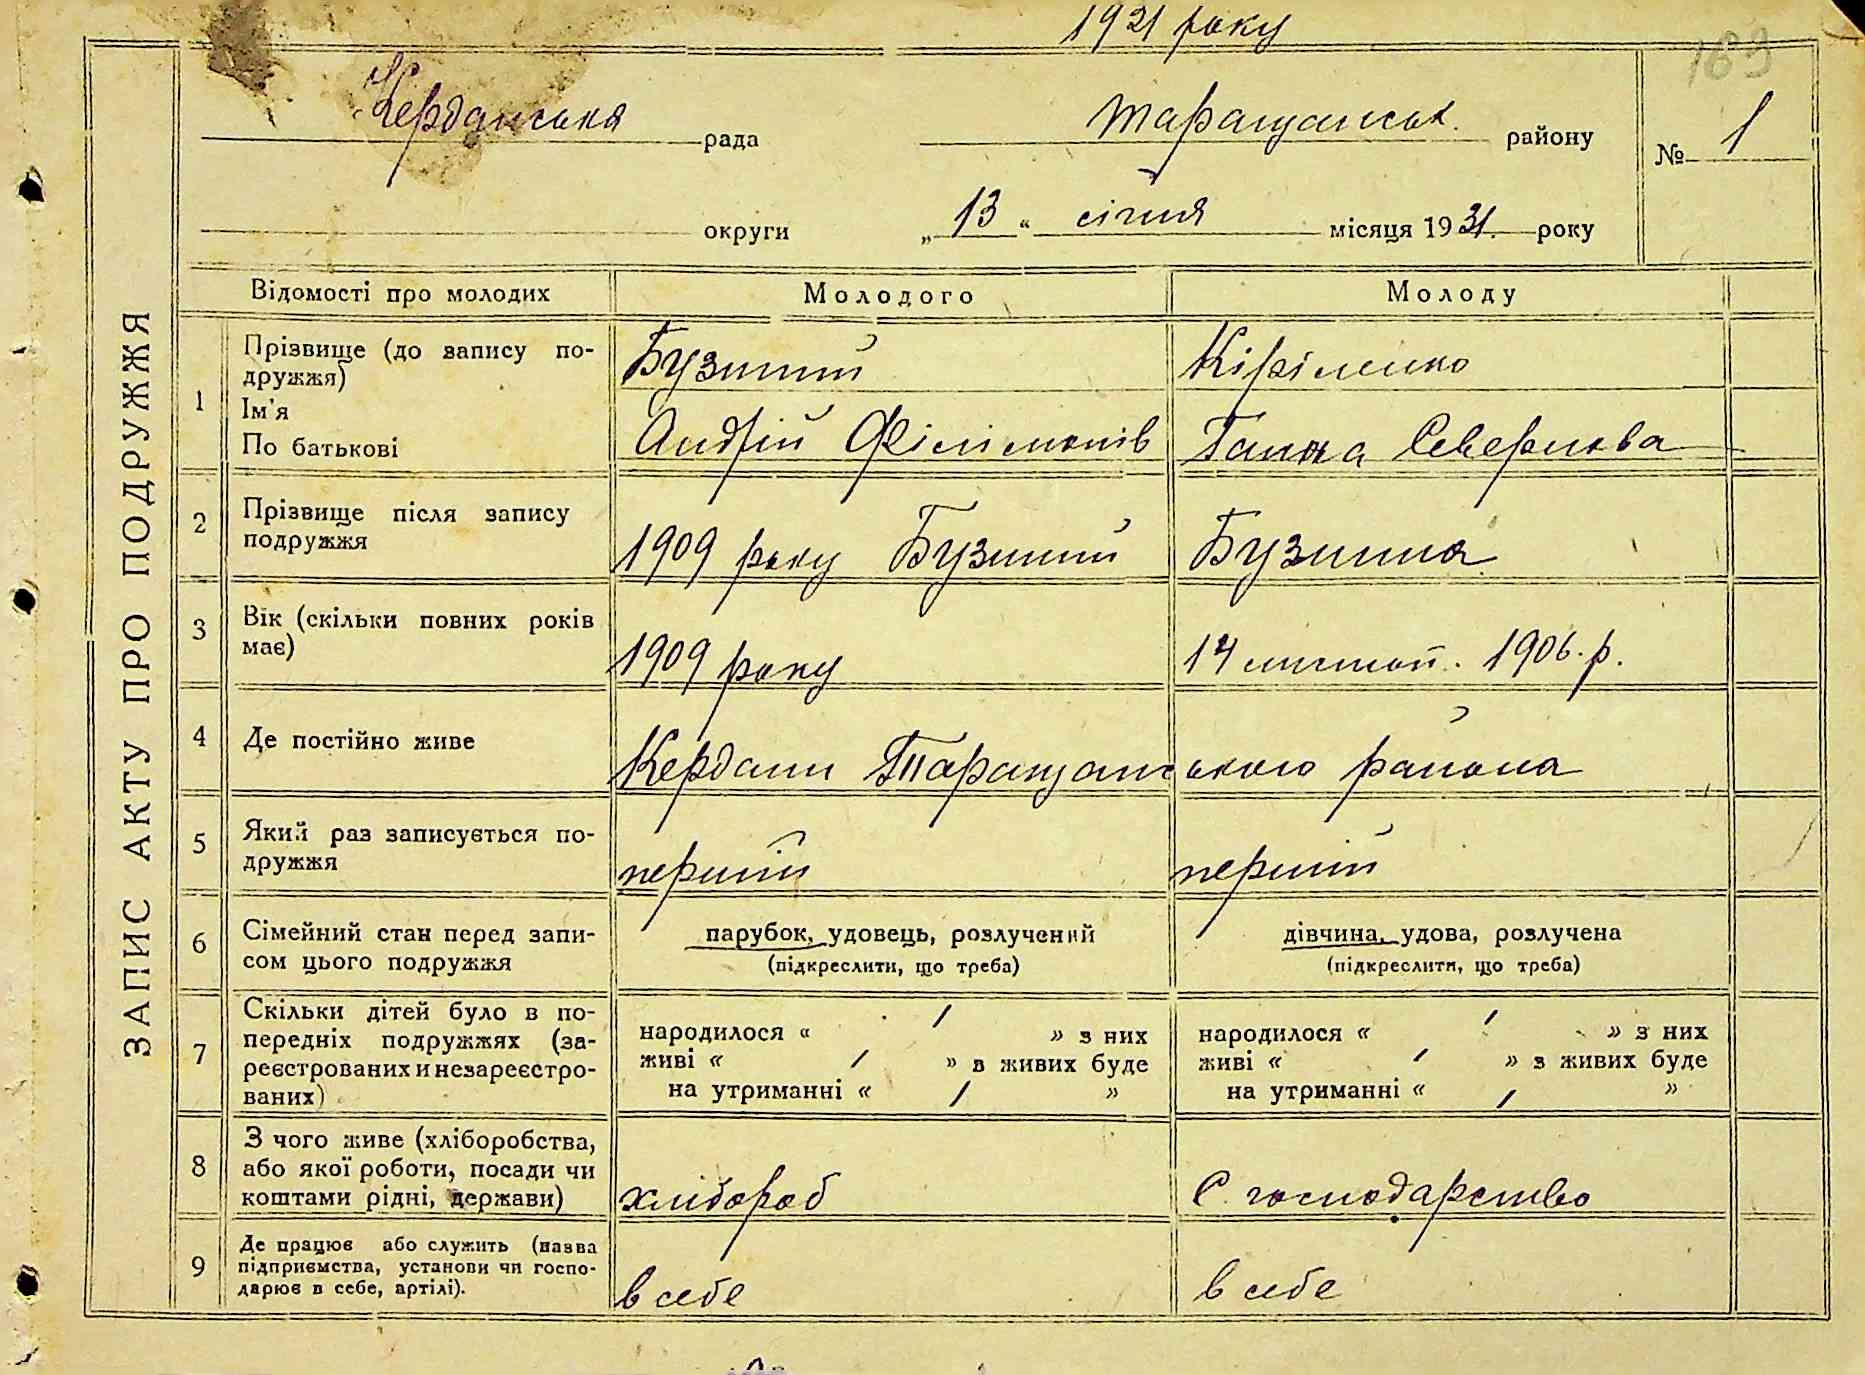 1921 року
169
Керданська рада Таращанськ. району № 1
округи „13“ січня місяця 1931. року
ЗАПИС АКТУ ПРО ПОДРУЖЖЯ
Відомості про молодих Молодого Молоду
1 Прізвище (до запису по-
дружжя) Бузиний Кіріленко
Ім'я
По батькові Андрій Філімонів Ганна Северпова
2 Прізвище після запису
подружжя 1909 року Бузиний Бузина
3 Вік (скільки повних років
має) 1909 року 14 листоп. 1906. р.
4 Де постійно живе Кердани Таращанського района
5 Який раз записується по-
дружжя перший перший
6 Сімейний стан перед запи-
сом цього подружжя
парубок, удовець, розлучений
(підкреслити, що треба)
дівчина, удова, розлучена
(підкреслити, що треба)
7 Скільки дітей було в по-
передніх подружжях (за-
реєстрованих и незареєстро-
ваних)
народилося « / » з них
живі « / » в живих буде
на утриманні « / »
народилося « / » з них
живі « / » з живих буде
на утриманні « / »
8 З чого живе (хліборобства,
або якої роботи, посади чи
коштами рідні, держави) хлібороб С. господарство
9 Де працює або служить (назва
підприємства, установи чи госпо-
дарює в себе, артілі). в себе в себе